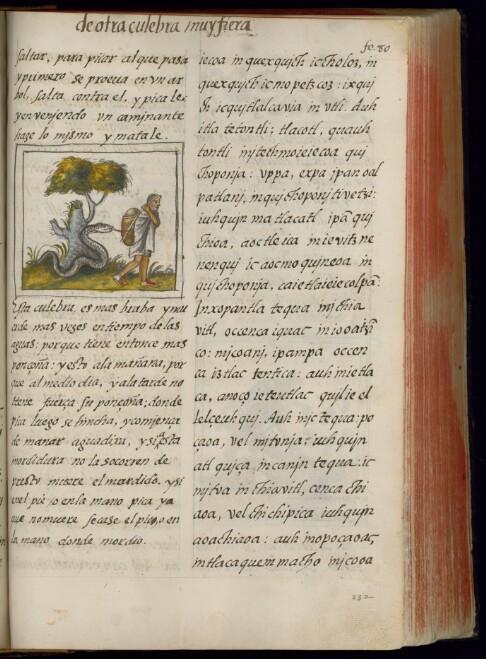 de otra culebra muy fiera
fo. 80
saltar, para picar al que pasa
y primero se proeua en vn ar
bol, salta contra el, y pica le:
y en veniendo vn caminante
haze lo mismo y matale.
Esta culebra, es mas braba y mu
erde mas vezes en tiempo de las
aguas: porque tiene entonce mas
ponçoña: y esto ala mañana, por
que al medio dia, y ala tarde no
tiene fuerça su ponçoña; donde
pica luego se hincha, y comiença
de manar aguadixa, y si esta
mordidura no la socorren de
presto muere el mordido. y si
en el pie, o en la mano pica ya
que no muere secase el pie, o en
la mano donde mordio.
ieicoa in quexquich ic tholoz, in
quexquich ic mopetzcoz: ixqui
ch ic quitlalcavia in vtli. Auh
itla tetontli; tlacotl, quauh
tontli injtech moieiecoa qui
choponja: vppa, expa ipan oal
patlanj, in quichoponjtivetzi:
iuhqujn ma tlacatl ipā qui
chioa, aoctle ica in ievitz ne
nenqui ic aocmo quineoa in
quichoponja, ca ietlaieiecolpā:
In xopantla tequa in thia
vitl, occenca iquac in iooatzī
co: micoanj, ipampa occen
ca iztlac tentica: auh in ietla
ca, anoço ie teutlac quilie el
lelceuhqui. Auh in ic tequa: po
çaoa, vel mitvnja; iuhquin
atl quiça in canin tequa: ic
mitva in thiavitl, cenca chi
aoa, vel chichipica iuhquin
aoachiaoa: auh in opoçaoac
in tlacaquem macho micooa
232